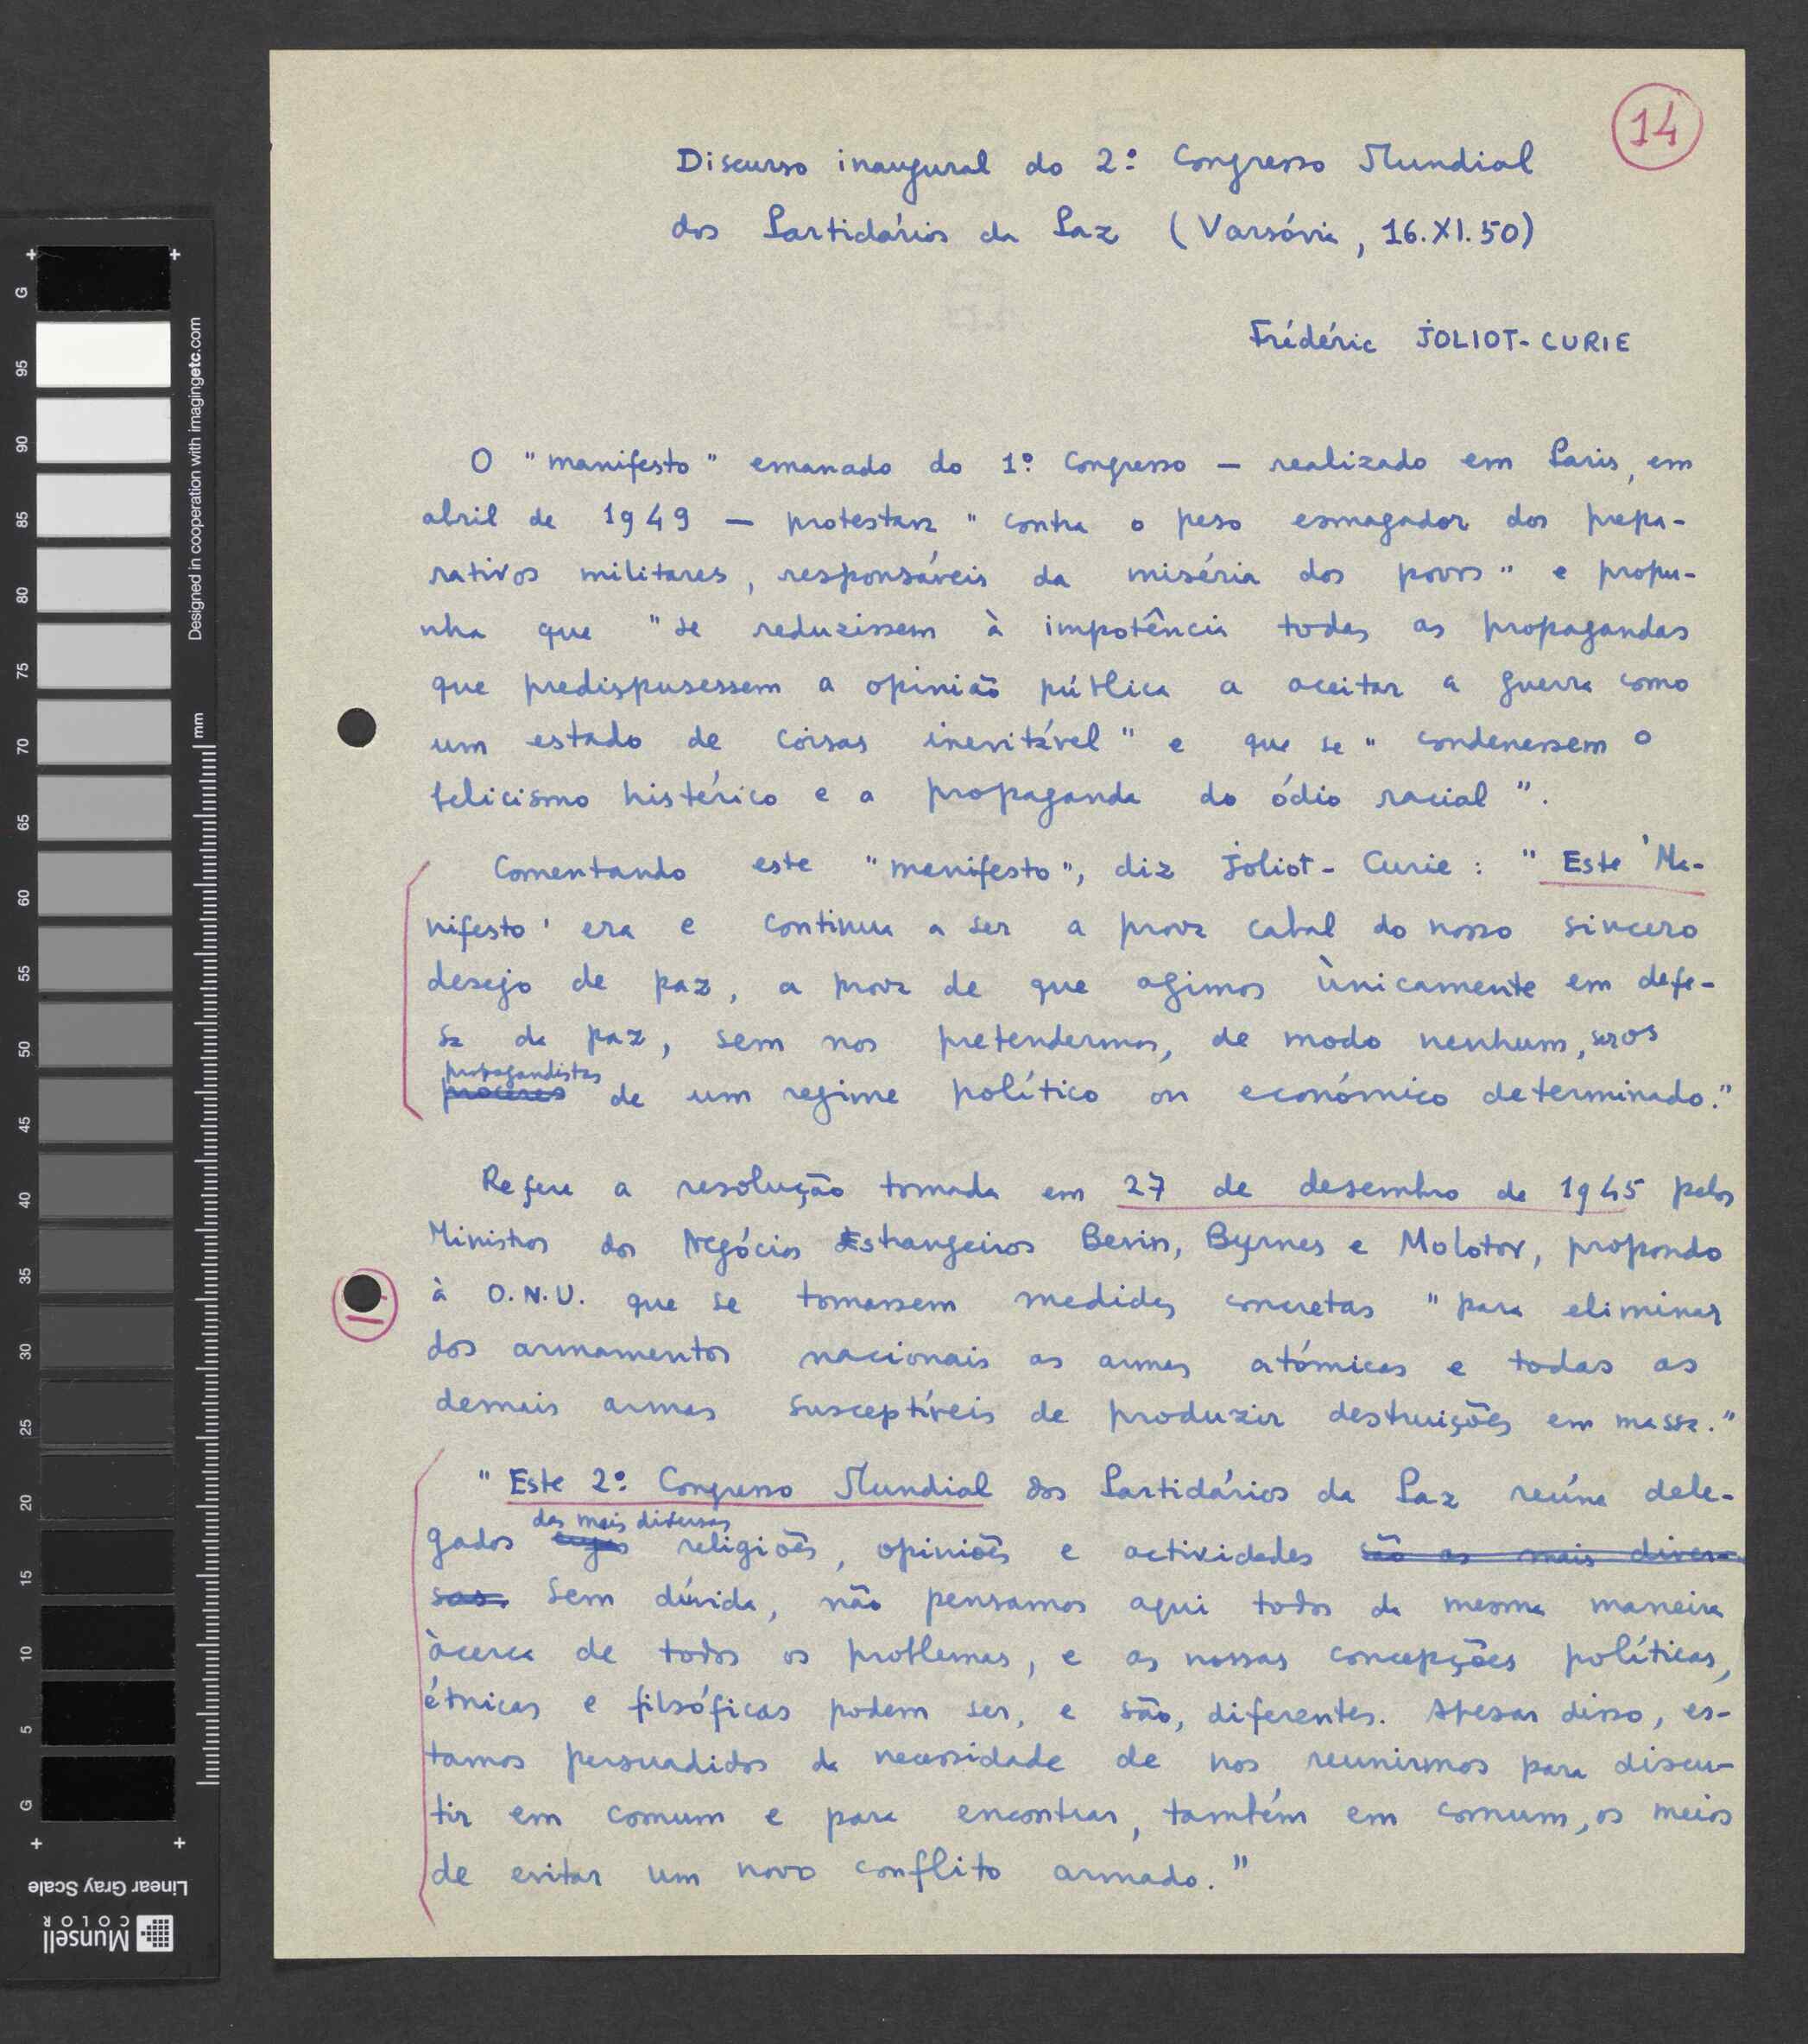 14
Discurso inaugural do 2º Congresso Mundial
dos Partidários da Paz (Varsóvia, 16.XI.50)
Frédéric JOLIOT-CURIE
O "manifesto" emanado do 1º Congresso — realizado em Paris, em
abril de 1949 — protestava "contra o peso esmagador dos prepa-
rativos militares, responsáveis da miséria dos povos" e propu-
nha que "se reduzissem à impotência todas as propagandas
que predispusessem a opinião pública a aceitar a guerra como
um estado de coisas inevitável" e que se "condenassem o
belicismo histérico e a propaganda do ódio racial".
Comentando este "manifesto", diz Joliot-Curie: "Este 'Ma-
nifesto' era e continua a ser a prova cabal do nosso sincero
desejo de paz, a prova de que agimos ùnicamente em defe-
sa da paz, sem nos pretendermos, de modo nenhum, seros
propagandistas
próceres de um regime político ou económico determinado."
Refere a resolução tomada em 27 de desembro de 1945 pelos
Ministros dos Negócios Estrangeiros Bevin, Byrnes e Molotov, propondo
à O.N.U. que se tomassem medidas concretas "para eliminar
dos armamentos nacionais as armas atómicas e todas as
demais armas susceptíveis de produzir destruições em massa."
"Este 2º Congresso Mundial dos Partidários da Paz reúne dele-
das mais diversas
gados cujas religiões, opiniões e actividades são as mais diver-
sas. Sem dúvida, não pensamos aqui todos da mesma maneira
àcerca de todos os problemas, e as nossas concepções políticas,
étnicas e filosóficas podem ser, e são, diferentes. Apesar disso, es-
tamos persuadidos da necessidade de nos reunirmos para discu-
tir em comum e para encontrar, também em comum, os meios
de evitar um novo conflito armado."
G
95
90
85
80
75
70
65
60
55
50
45
40
35
30
25
20
15
10
5
G
Designed in cooperation with imagingetc.com
mm
Linear Gray Scale
Munsell
COLOR